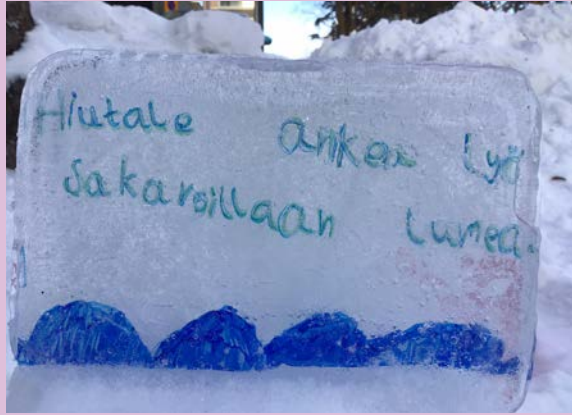 Hiutale ankea lyö
sakaroillaan lunea.